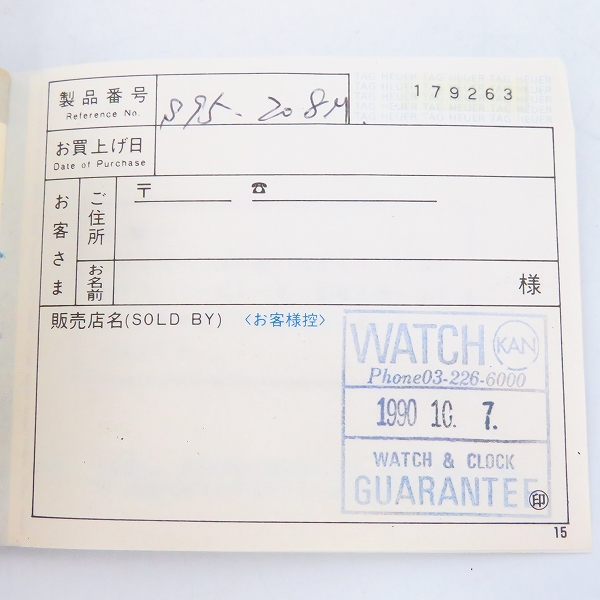 TAG HEUER TAG HEUER TAG HEUER
製品番号 S95-208M. 179263
Reference No.
お買上げ日
Date of Purchase
お客さま
ご住所 〒 ☎
お名前 様
販売店名(SOLD BY) 〈お客様控〉
WATCH KAN
Phone03-226-6000
1990 10. 7.
WATCH & CLOCK
GUARANTEE
印
15